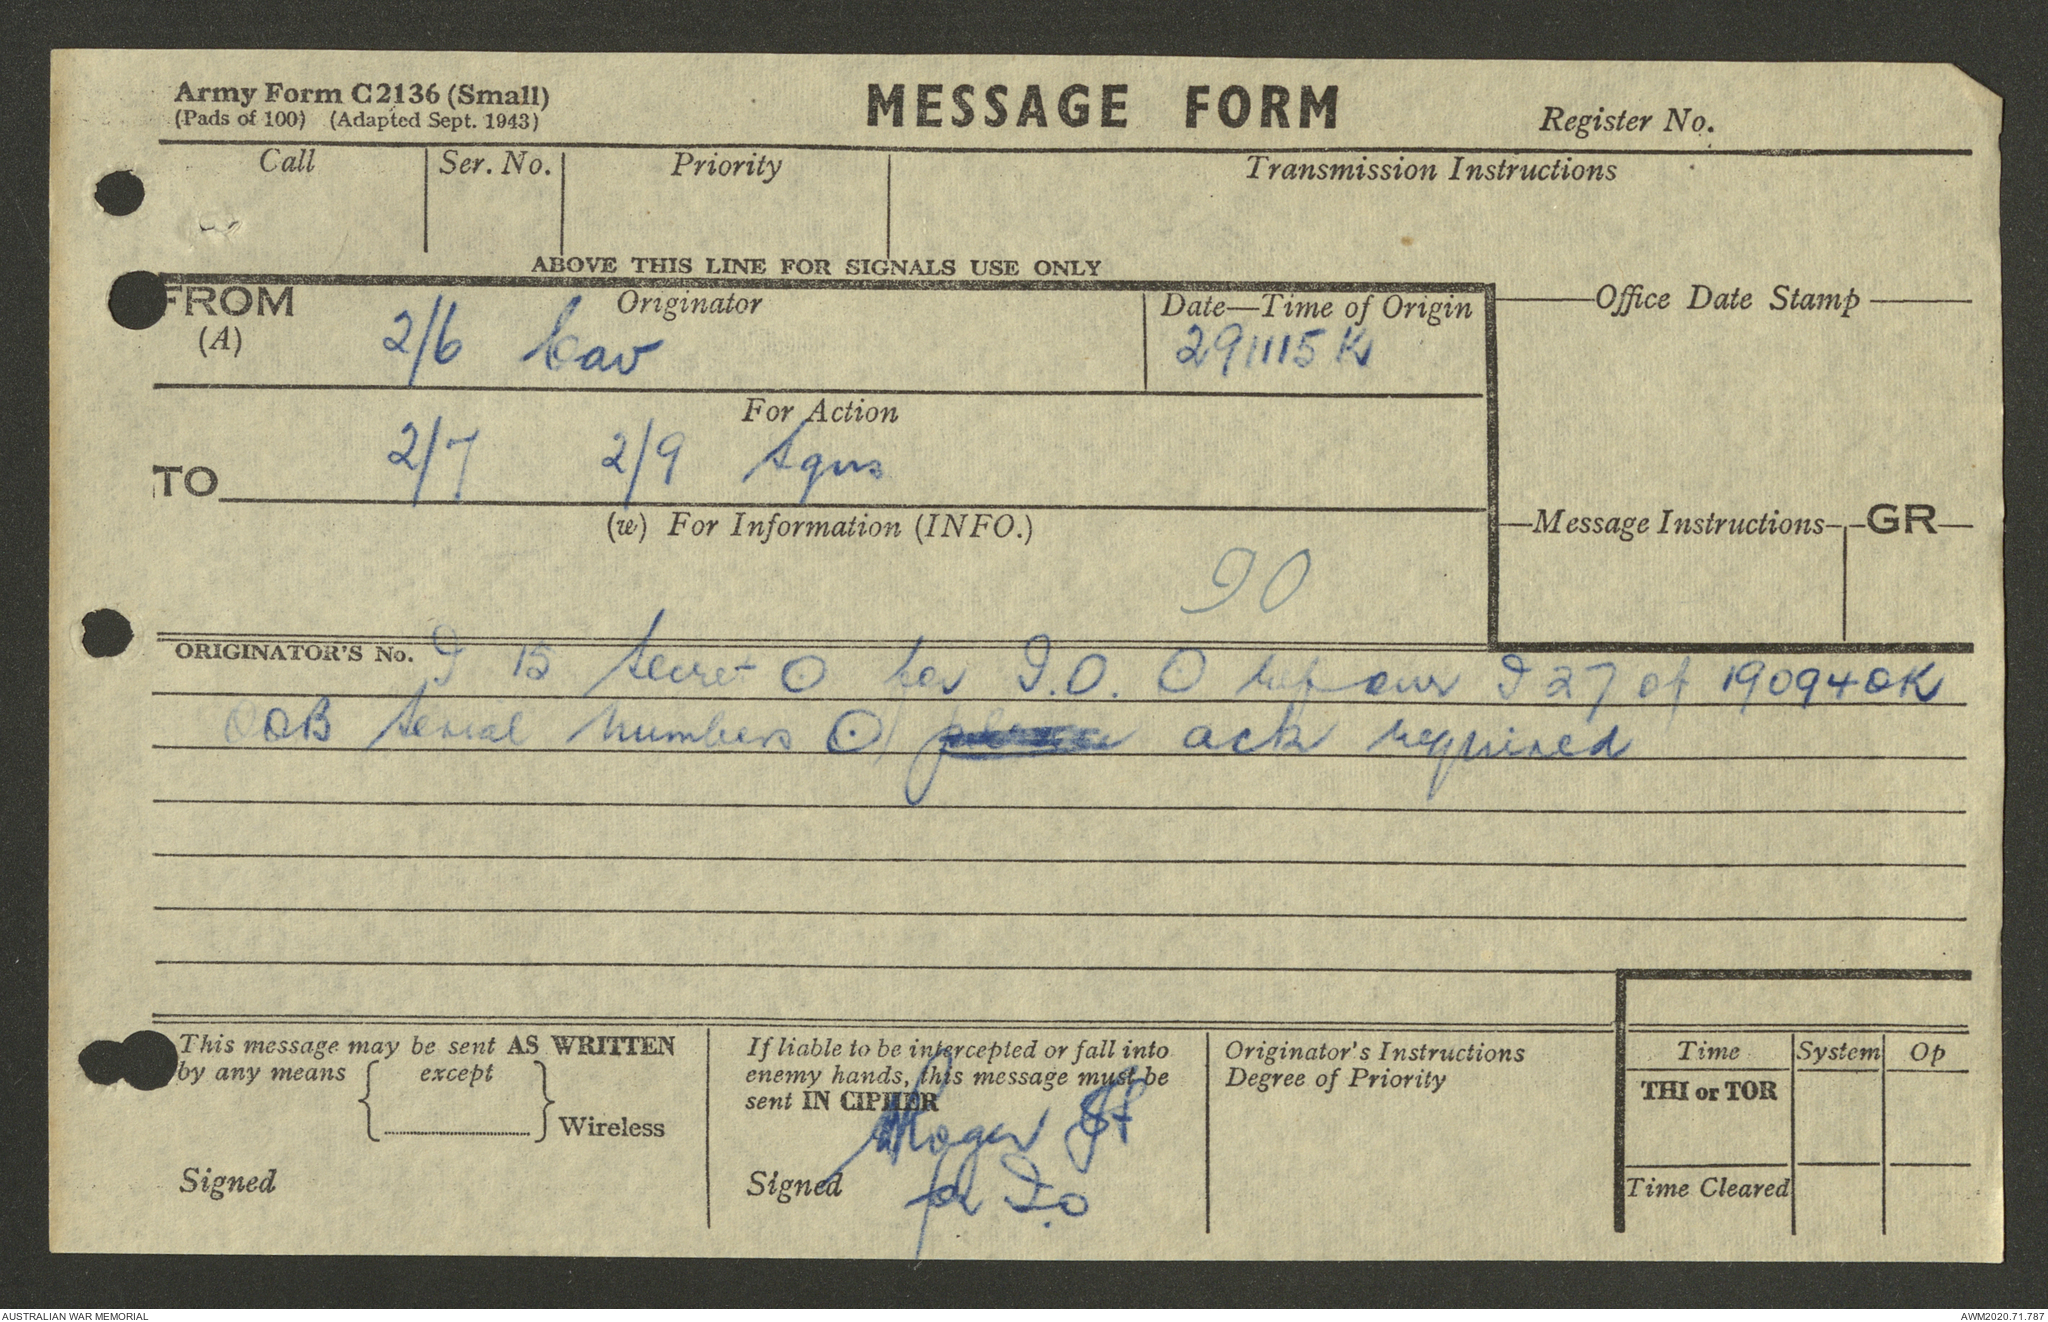 Army Form C2136 (Small)
(Pads of 100) (Adapted Sept. 1943)
MESSAGE FORM
Register No.
Call Ser. No. Priority Transmission Instructions
ABOVE THIS LINE FOR SIGNALS USE ONLY
FROM Originator Date—Time of Origin Office Date Stamp
(A) 2/6 Cav 291115K
For Action
TO 2/7 2/9 Sqns
(w) For Information (INFO.) Message Instructions GR
ORIGINATOR'S No. I 15 Secret ⊙ for I.O. ⊙ ref our I 27 of 190940K
OOB serial numbers ⊙ ack required
This message may be sent AS WRITTEN
by any means except
Wireless
Signed
If liable to be intercepted or fall into
enemy hands, this message must be
sent IN CIPHER
Signed
for I.O
Originator's Instructions
Degree of Priority
Time System Op
THI or TOR
Time Cleared
AUSTRALIAN WAR MEMORIAL AWM2020.71.787